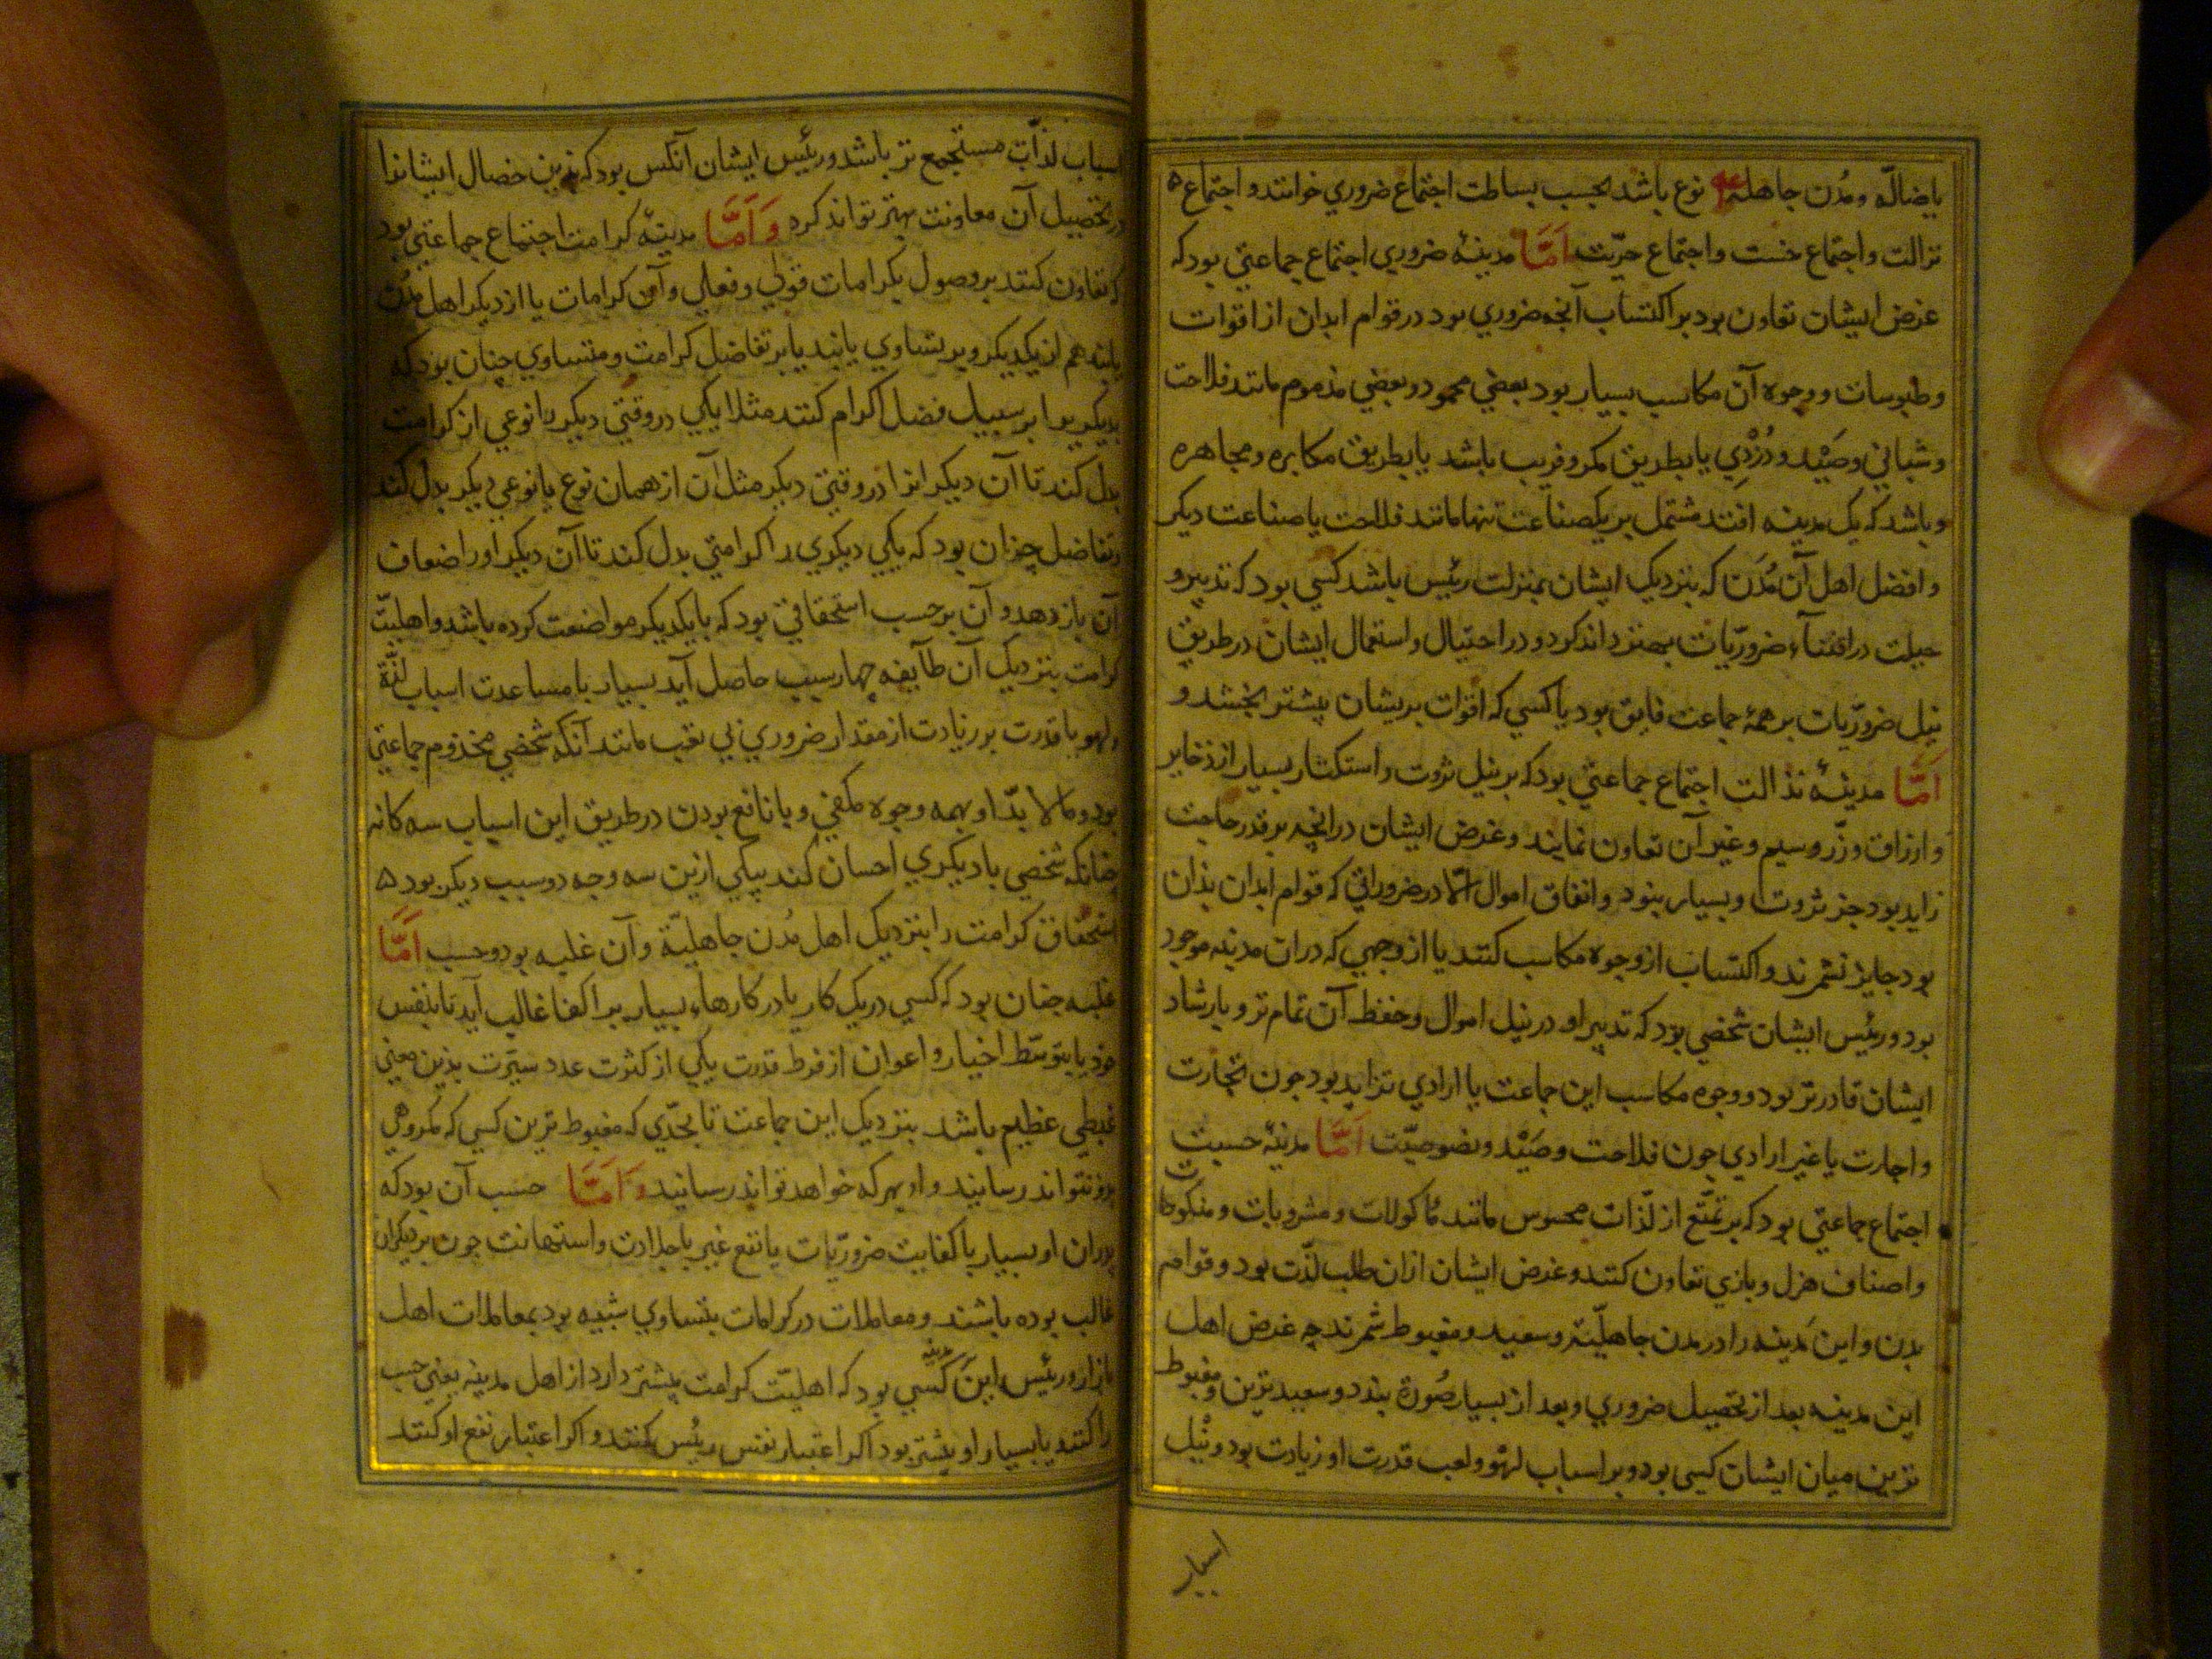 یا ضالّه و مُدن جاهله نوع باشد بحسب بساطت اجتماع ضروري خوانند و اجتماع
نزالت و اجتماع خست و اجتماع حرّیت اَمَّا مدینهٔ ضروري اجتماع جماعتي بود که
غرض ایشان تعاون بود بر اکتساب آنچه ضروري بود در قوام ابدان از اقوات
و ملبوسات و وجوه آن مکاسب بسیار بود بعضي محمود و بعضي مذموم مانند فلاحت
و شباني و صَیْد و دُزْدِي یا بطریق مکر و فریب باشد یا بطریق مکابره و مجاهره
و باشد که یک مدینه افتد مشتمل بر یکصناعت تنها مانند فلاحت یا صناعت دیکر
و افضل اهل آن مُدَن که بنزدیک ایشان بمنزلت رئیس باشد کسي بود که تدبیر و
حیلت در اقتناء ضروریّات بهتر داند کرد و در احتیال و استعمال ایشان در طریق
نیل ضروریّات بر همهٔ جماعت فایق بود یا کسي که اقوات بریشان بیشتر بخشد و
اَمَّا مدینهٔ نذالت اجتماع جماعتي بود که بر نیل ثروت و استکثار بسیار از ذخایر
و ارزاق و زّر و سیم و غیر آن تعاون نمایند و غرض ایشان در انچه بر قدر حاجت
زاید بود جز ثروت و بسیار بنود و انفاق اموال الّا در ضروراتي که قوام ابدان بذان
بود جایز نشمرند و اکتساب از وجوه مکاسب کنند یا از وجهي که در ان مدینه موجود
بود و رئیس ایشان شخصي بود که تدبیر او در نیل اموال و حفظ آن تمام تر و بارشاد
ایشان قادرتر بود و وجوه مکاسب این جماعت یا ارادي تزاید بود جون تجارت
و اجارت یا غیر ارادي جون فلاحت و صَیْد و لصوصیّت اَمَّا مدینهٔ خسیت
اجتماع جماعتي بود که بر تمّتع از لّذات محسوس مانند مأکولات و مشروبات و منکوحات
و اصناف هزل و بازي تعاون کنند و غرض ایشان ازان طلب لذّت بود و قوام
بدن و این مَدینه را در مدن جاهلیّة و سعید و مغبوط شمرند چه غرض اهل
این مدینه بعد از تحصیل ضروري و بعد از بسیار صُورة بندد و سعید ترین و مغبوط
ترین میان ایشان کسي بود و بر اسباب لهو و لعب قدرت او زیادت بود و نَیْل
اسباب
اسباب لذّات مستجمع تر باشد و رئیس ایشان آنکس بود که بذین خصال ایشانرا
در تحصیل آن معاونت بهتر تواند کرد وَ اَمَّا مدینهٔ کرامت اجتماع جماعتي بود
که تعاون کنند بر وصول بکرامات قولي و فعلي و آن کرامات یا از دیکر اهل مُدُن
یابند هم از یکدیکر و بر تساوي یابند یا بر تفاضل کرامت و متساوي چنان بود که
یکدیکر را بر سبیل فضل اکرام کنند مثلا یکي در وقتي دیکر را نوعي از کرامت
بدل کند تا آن دیکر انرا در وقتي دیکر مثل آن از همان نوع یا نوعي دیکر بدل کند
و تفاضل چنان بود که یکي دیکري را کرامتي بدل کند تا آن دیکر اورا ضعاف
آن باز دهد و آن بر حسب استحقاقي بود که با یکدیکر مواضعت کرده باشد و اهلیّت
کرامت بنزدیک آن طایفه چهار سبب حاصل آید بسیار یا مساعدت اسباب لذّة
و لهو یا قدرت بر زیادت از مقدار ضروري بي تعب مانند آنکه شخصي مخدوم جماعتي
بود و ما لا بدّ او بهمه وجوه مکفي و یا نافع بودن در طریق این اسباب سه کانه
چنانکه شخصي با دیکري احسان کند بیکي ازین سه وجه دو سبب دیکر بود
استحقاق کرامت را بنزدیک اهل مُدن جاهلیّة و آن غلبه بود و حسب اَمَّا
غلبه چنان بود که کسي در یک کار یا در کارهاء بسیار بر اکفا غالب آید تا بنفس
خود یا بتوسّط اخیار و اعوان از فرط قدرت یکي از کثرت عدد سیّرت بذین معني
غبطي عظیم باشد بنزدیک این جماعت تا بحّدي که مغبوط ترین کسي که مکروهي
بدو نتواند رسانید و او بهر که خواهد تواند رسانید وَ اَمَّا حسب آن بود که
پدران او بسیار یا کفایت ضروریّات یا نفع غیر یا جلادت و استهانت جون بر دیکران
غالب بوده باشند و معاملات در کرامات بتساوي شبیه بود بمعاملات اهل
بازار و رئیس این مدینه کسي بود که اهلیّت کرامت بیشتر دارد از اهل مدینه یعني حسب
را کنند یا بسیار او بیشتر بود اکر اعتبار نفس رئیس کنند و اکر اعتبار نفع او کنند